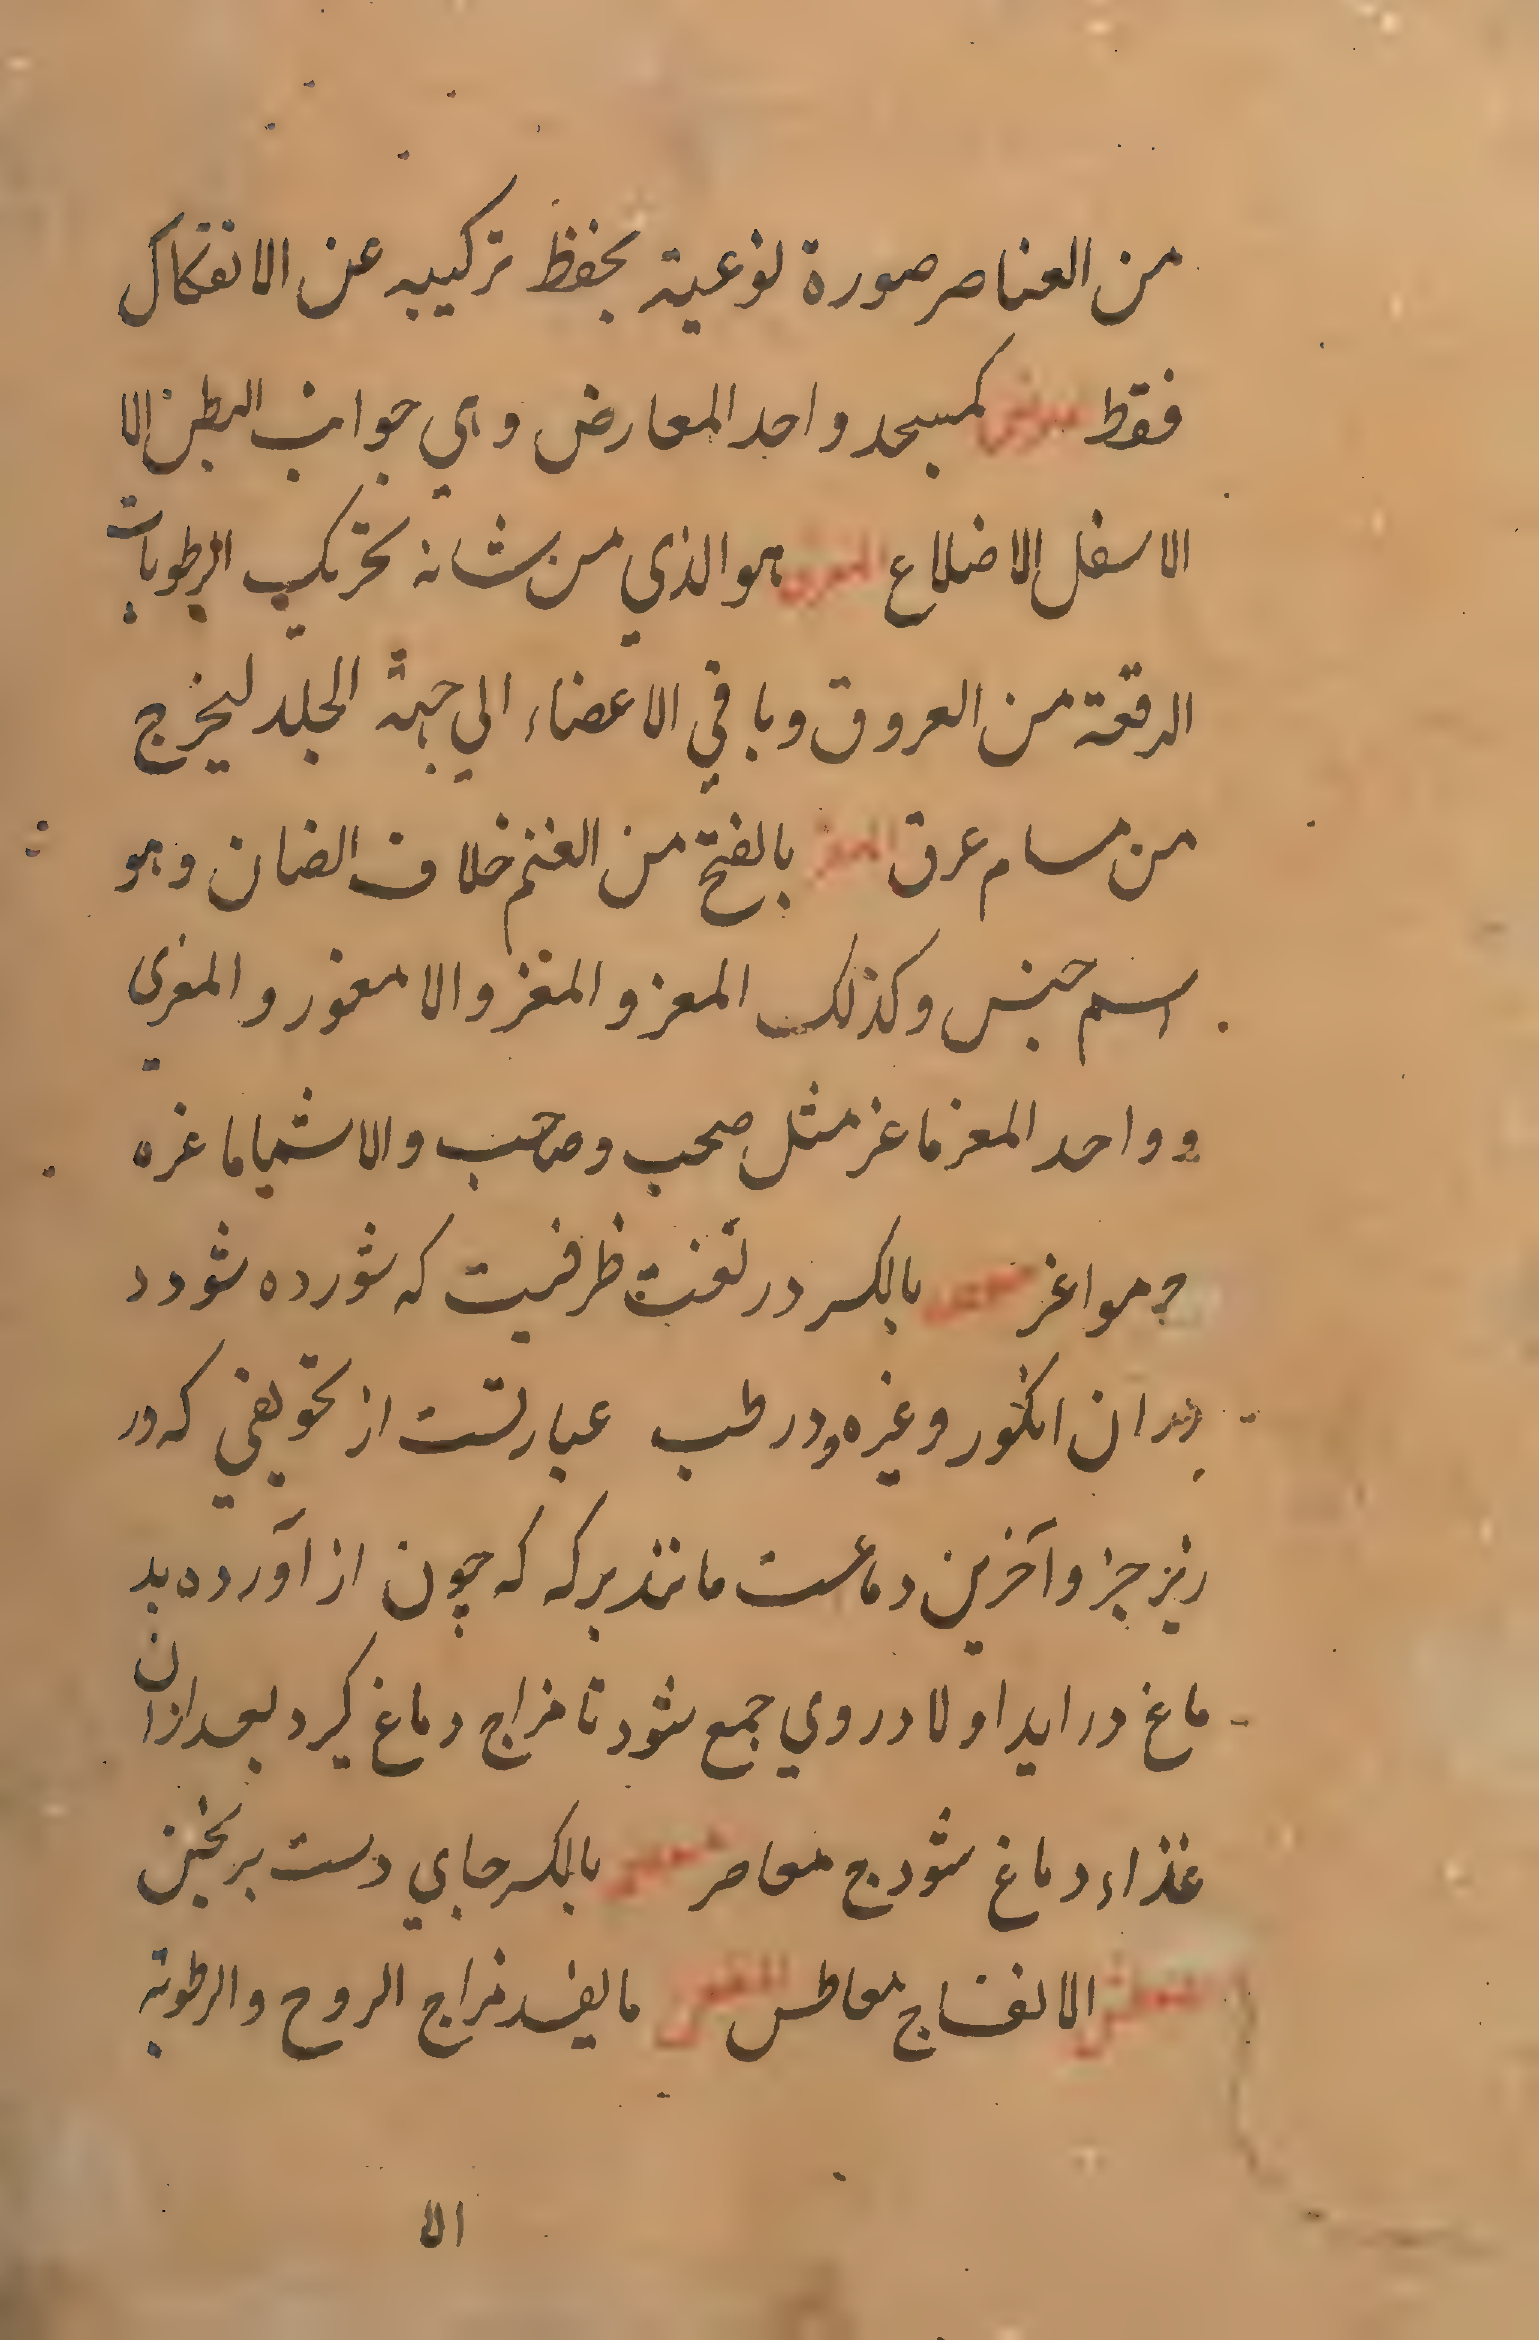 من العناصر صورة لوعية يحفظ تركيبه عن الانفكاك
فقط معرض كمسجد واحد المعارض وهي جوانب البطن الا
الاسفل الاضلاع المعرق هو الذي من شانه تحريك الرطوبات
الدقعة من العروق وباقي الاعضاء الي جهة الجلد ليخرج
من مسام عرق المعز بالفتح من الغنم خلاف الضان وهو
اسم جنس وكذلك المعز و المغز والامعوز و المعزي
و واحد المعز ماعز مثل صحب وصاحب والاشيا ماعزه
ج مواعز بالكسر در لغت ظرفيت كه شورده شود د
بدران انكور وغيره ودر طب عبارتست از تجويفي كه در
زير جزو آخرين دماغست مانند بركه كه چون از آورده بد
ماغ در ايد اولا در وي جمع شود تا مزاج دماغ كيرد بعد ازان
غذاء دماغ شود ج معاصر بالكسر جاي دست برنجن
معطس الانف ج معاطس المعفن ما يفسد مزاج الروح والرطوبة
الا